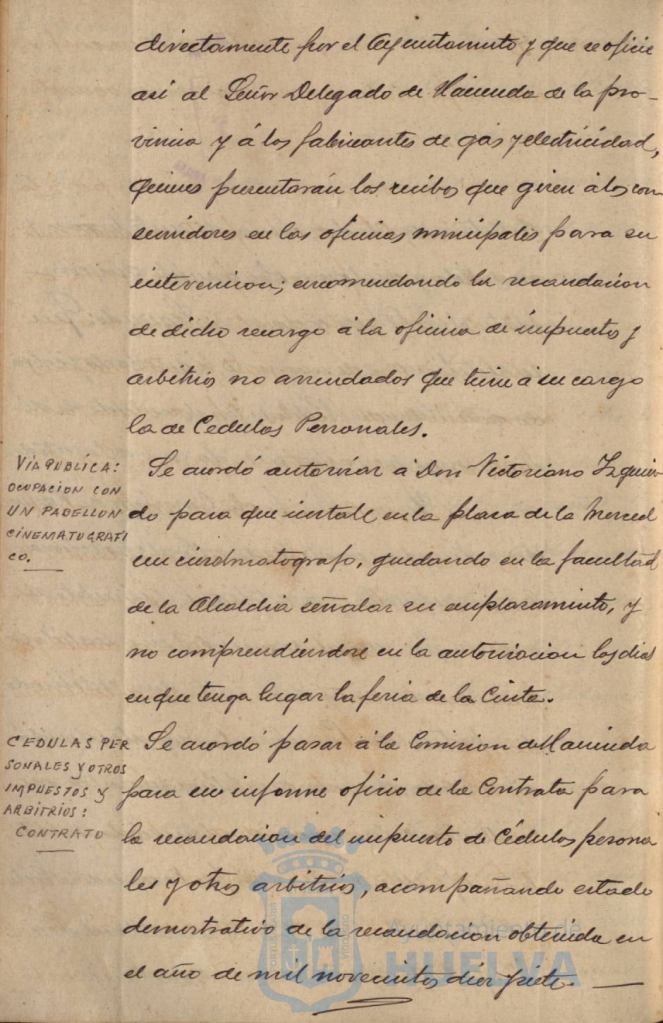 directamente por el Ayuntamiento y que se oficie
asi al Señor Delegado de Hacienda de la pro-
vincia y á los fabricantes de gas y electricidad,
quienes presentarán los recibos que giren á los con
sumidores en las oficinas municipales para su
intervencion; encomendando la recaudacion
de dicho recargo á la oficina de impuestos y
arbitrios no arrendados que tiene á su cargo
la de Cedulas Personales.
VÍA PUBLICA:
OCUPACION CON
UN PABELLON
CINEMATOGRAFI
CO.
Se acordó autorizar á Don Victoriano Izquier-
do para que instale en la plaza de la Merced
un cinematografo, quedando en la facultad
de la Alcaldia señalar su emplazamiento, y
no comprendiéndose en la autorizacion los dias
en que tenga lugar la feria de la Cinta.
CEDULAS PER
SONALES Y OTROS
IMPUESTOS Y
ARBITRIOS:
CONTRATO
Se acordó pasar á la Comision de Hacienda
para su informe oficio de la Contrata para
la recaudacion del impuesto de Cédulas persona
les y otros arbitrios, acompañando estado
demostrativo de la recaudacion obtenida en
el año de mil novecientos diez y siete.
Ayuntamiento de
HUELVA